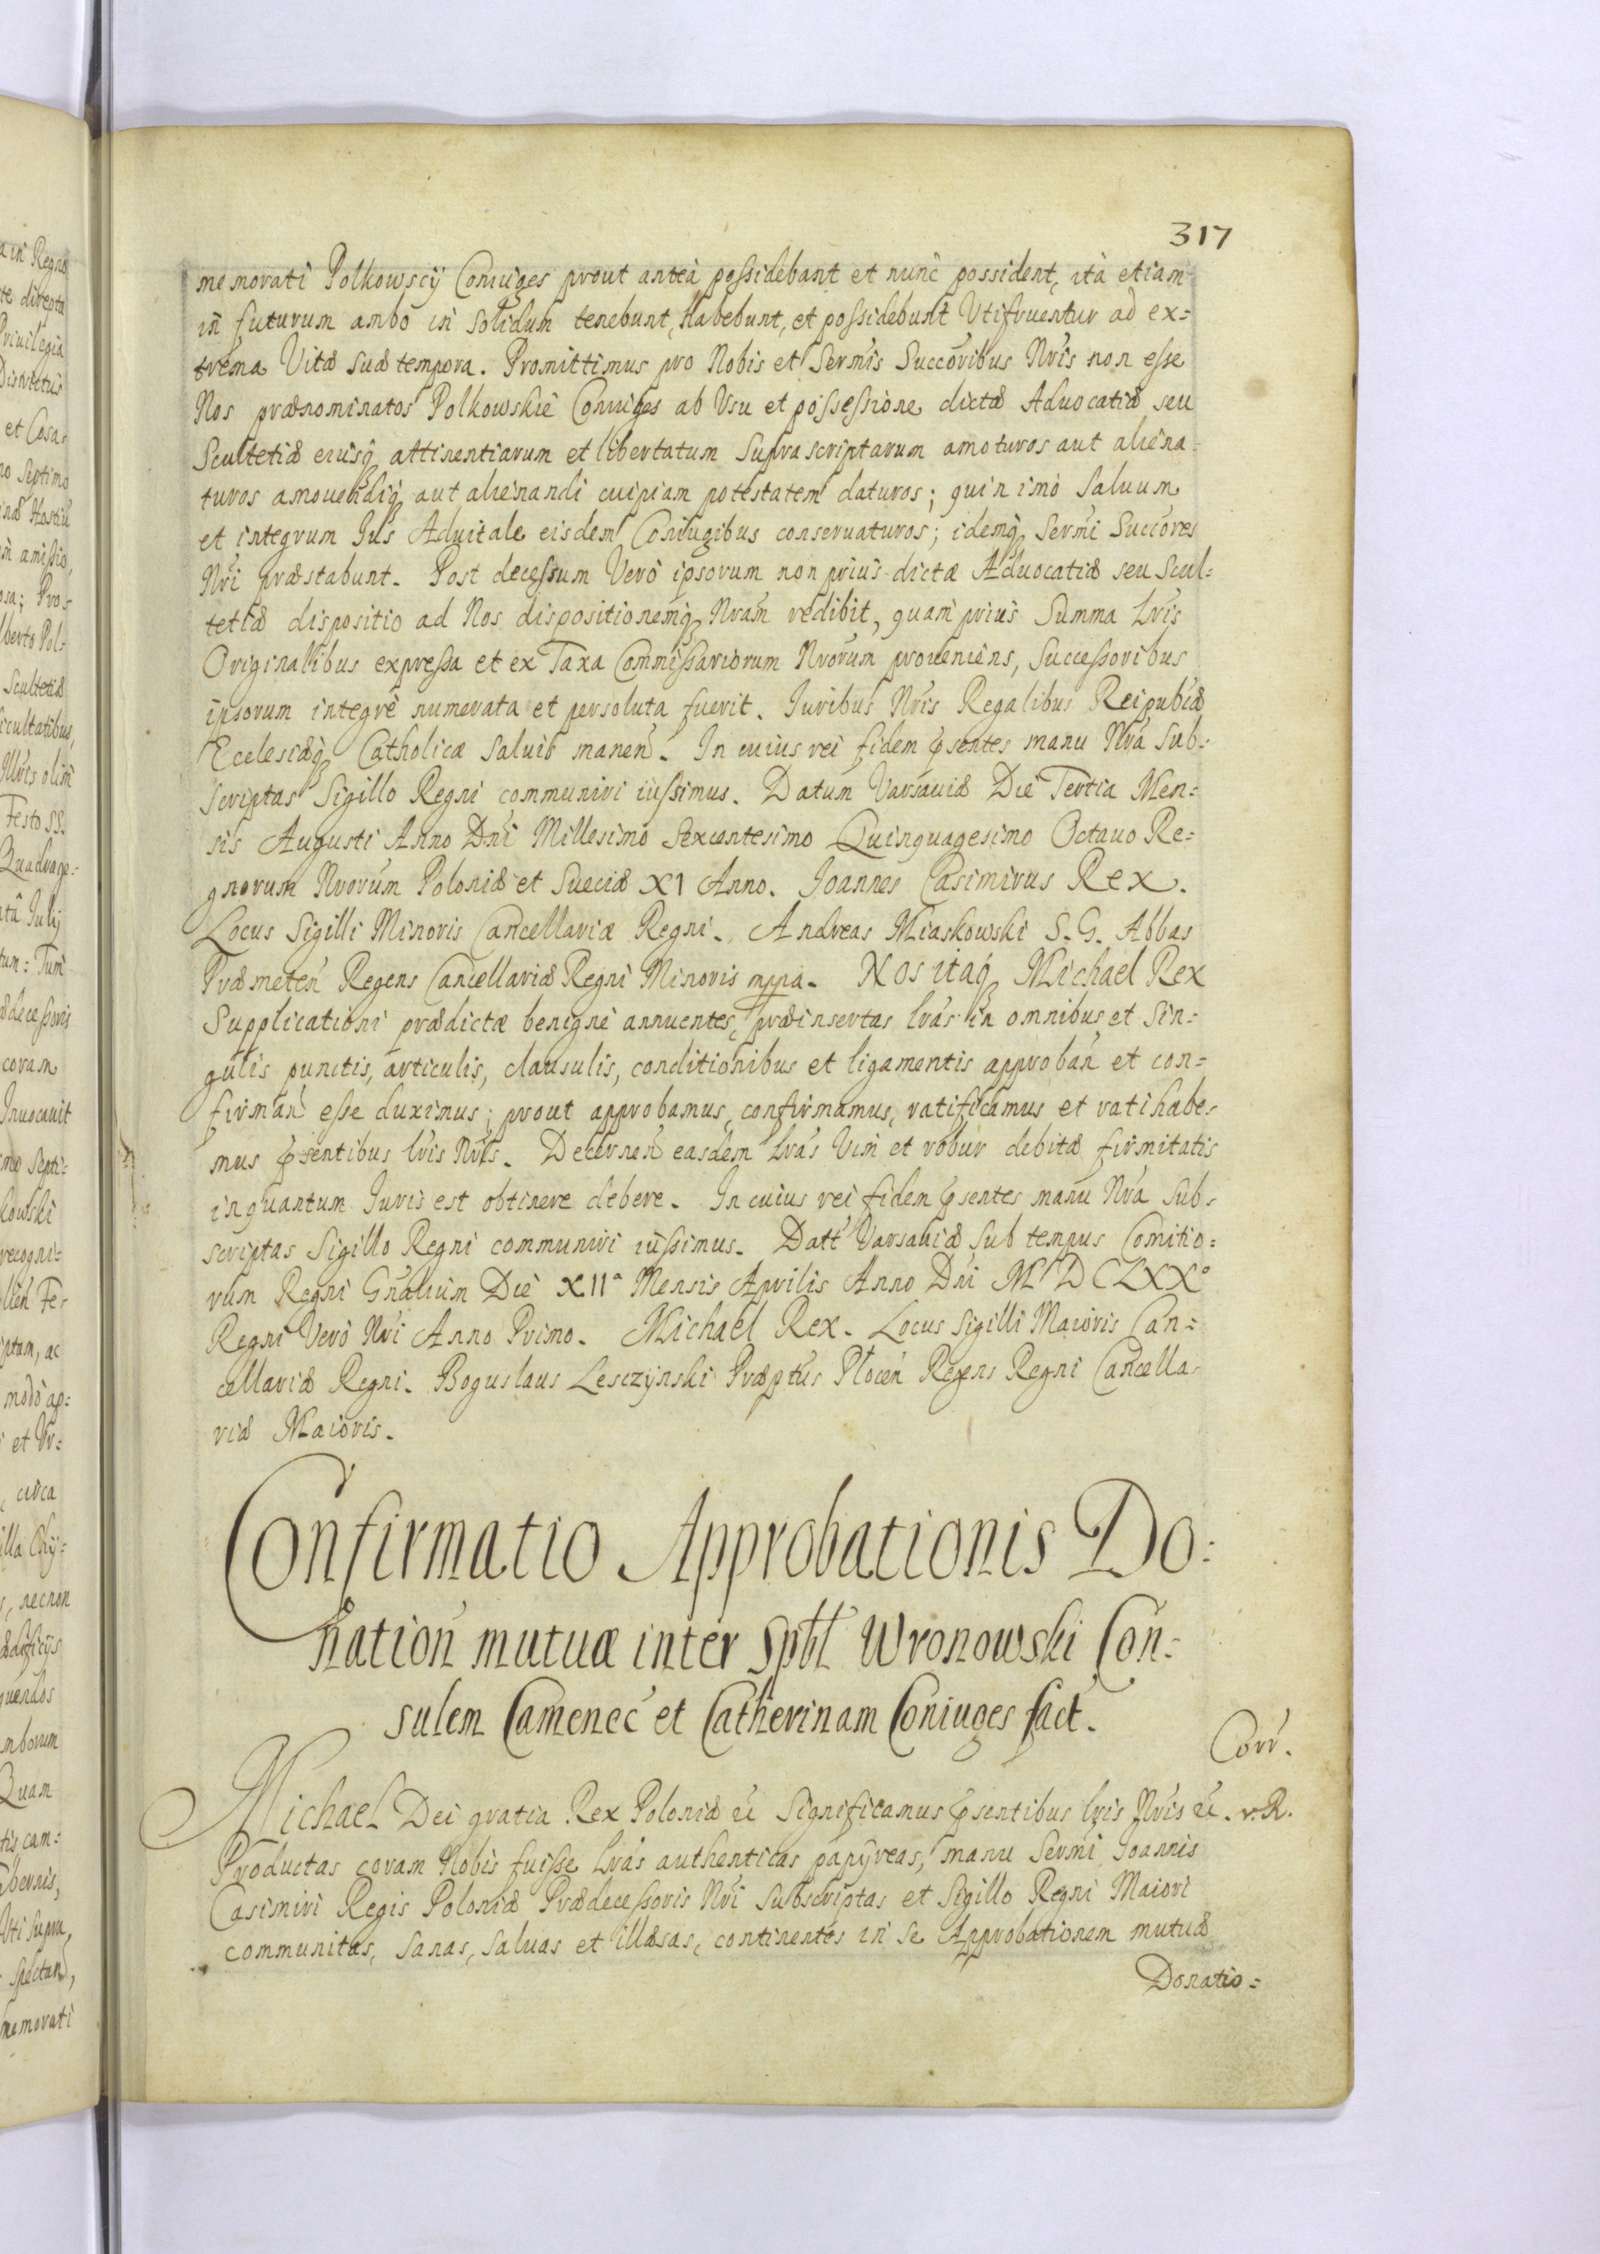 317
memorati Polkowscÿ Coniuges prout anteà possidebant et nunc possident, ità etiam
in futurum ambo in solidum tenebunt, habebunt, et possidebunt Utifruentur ad ex=
trema Vitæ suæ tempora. Promittimus pro Nobis et Serm̃is Succoribus Nr̃is non esse
Nos prænominatos Polkowskie Coniuges ab Usu et possessione dictæ Aduocatiæ seu
Scultetiæ eiusq̃ attinentiarum et libertatum suprascriptarum amoturos aut aliena=
turos amouendiq̃ aut alienandi cuipiam potestatem daturos; quin imò saluum
et integrum Jus Aduitale eisdem Coniugibus conseruaturos; idemq̃ Serm̃i Succores
Nr̃i præstabunt. Post decessum Verò ipsorum non prius dictæ Aduocatiæ seu Scul=
tetiæ dispositio ad Nos dispositionemq̃ Nram̃ redibit, quam prius Summa Lr̃is
Originalibus expressa et ex Taxa Commissariorum Nrorum̃ proueniens, Successoribus
ipsorum integrè numerata et persoluta fuerit. Juribus Nr̃is Regalibus Reipub̃æ
Ecclesiæq̃ Catholicæ saluis maneñ. In cuius rei fidem p̃sentes manu Nr̃a sub=
scriptas Sigillo Regni communiri iussimus. Datum Varsauiæ Die Tertia Men=
sis Augusti Anno Dñi Millesimo Sexcentesimo Quinquagesimo Octauo Re=
gnorum Nrorum̃ Poloniæ et Sueciæ XI Anno. Joannes Casimirus Rex.
Locus Sigilli Minoris Cancellariæ Regni. Andreas Miaskowski S. G. Abbas
Præmeteñ Regens Cancellariæ Regni Minoris mppa. Nos itaq̃ Michael Rex
Supplicationi prædictæ benignè annuentes, præinsertas lr̃as in omnibus et sin=
gulis punctis, articulis, clausulis, conditionibus et ligamentis approbañ et con=
firmañ esse duximus; prout approbamus, confirmamus, ratificamus et ratihabe=
mus p̃sentibus lr̃is Nr̃is. Decerneñ easdem Lr̃as Vim et robur debitæ firmitatis
inquantum Juris est obtinere debere. In cuius rei fidem p̃sentes manu Nr̃a sub=
scriptas Sigillo Regni communiri iussimus. Datt Varsauiæ sub tempus Comitio=
rum Regni Gñalium Die XIIa Mensis Aprilis Anno Dñi MDCLXXo
Regni Verò Nr̃i Anno Primo. Michaël Rex. Locus Sigilli Maioris Can=
cellariæ Regni. Boguslaus Lesczÿnski Præptũs Płoceñ Regens Regni Cancella=
riæ Maioris.
Confirmatio Approbationis Do=
nation̄ mutuæ inter Spbl Wronowski Con=
sulem Camenec̃ et Catherinam Coniuges fact̃.
Corr̃.
Michael Dei gratia Rex Poloniæ &c̃ Significamus p̃sentibus lr̃is Nr̃is &c̃. v. R.
Productas coram Nobis fuisse Lr̃as authenticas papÿreas, manu Serm̃i Joannis
Casimiri Regis Poloniæ Prædecessoris Nr̃i subscriptas et Sigillo Regni Maiori
communitas, sanas, saluas et illæsas, continentes in se Approbationem mutuæ
Donatio=